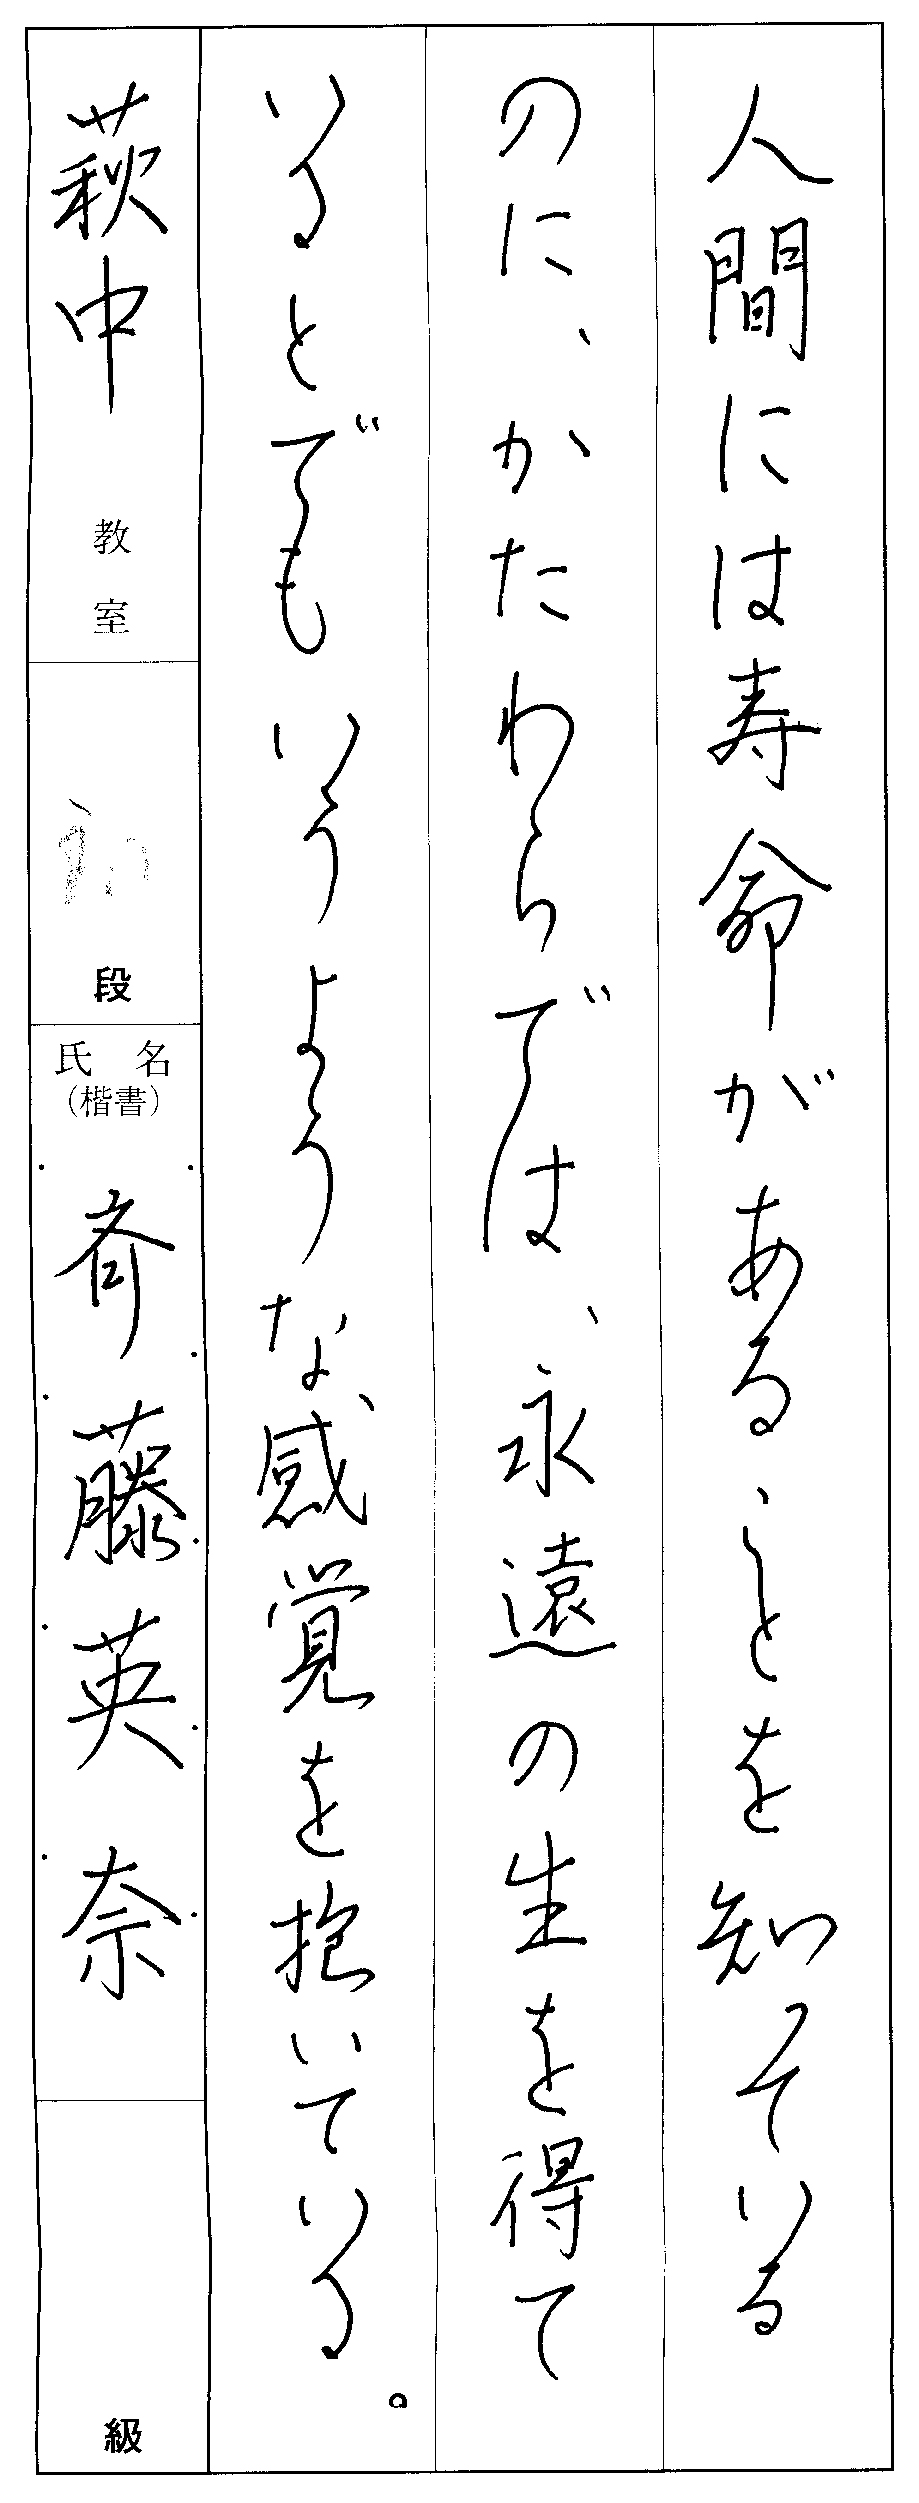 人間には寿命があることを知っている
のに、かたわらでは、永遠の生を得て
いるとでもいうような感覚を抱いている。
萩中 教室
段
氏名
(楷書)
斉藤英奈
級